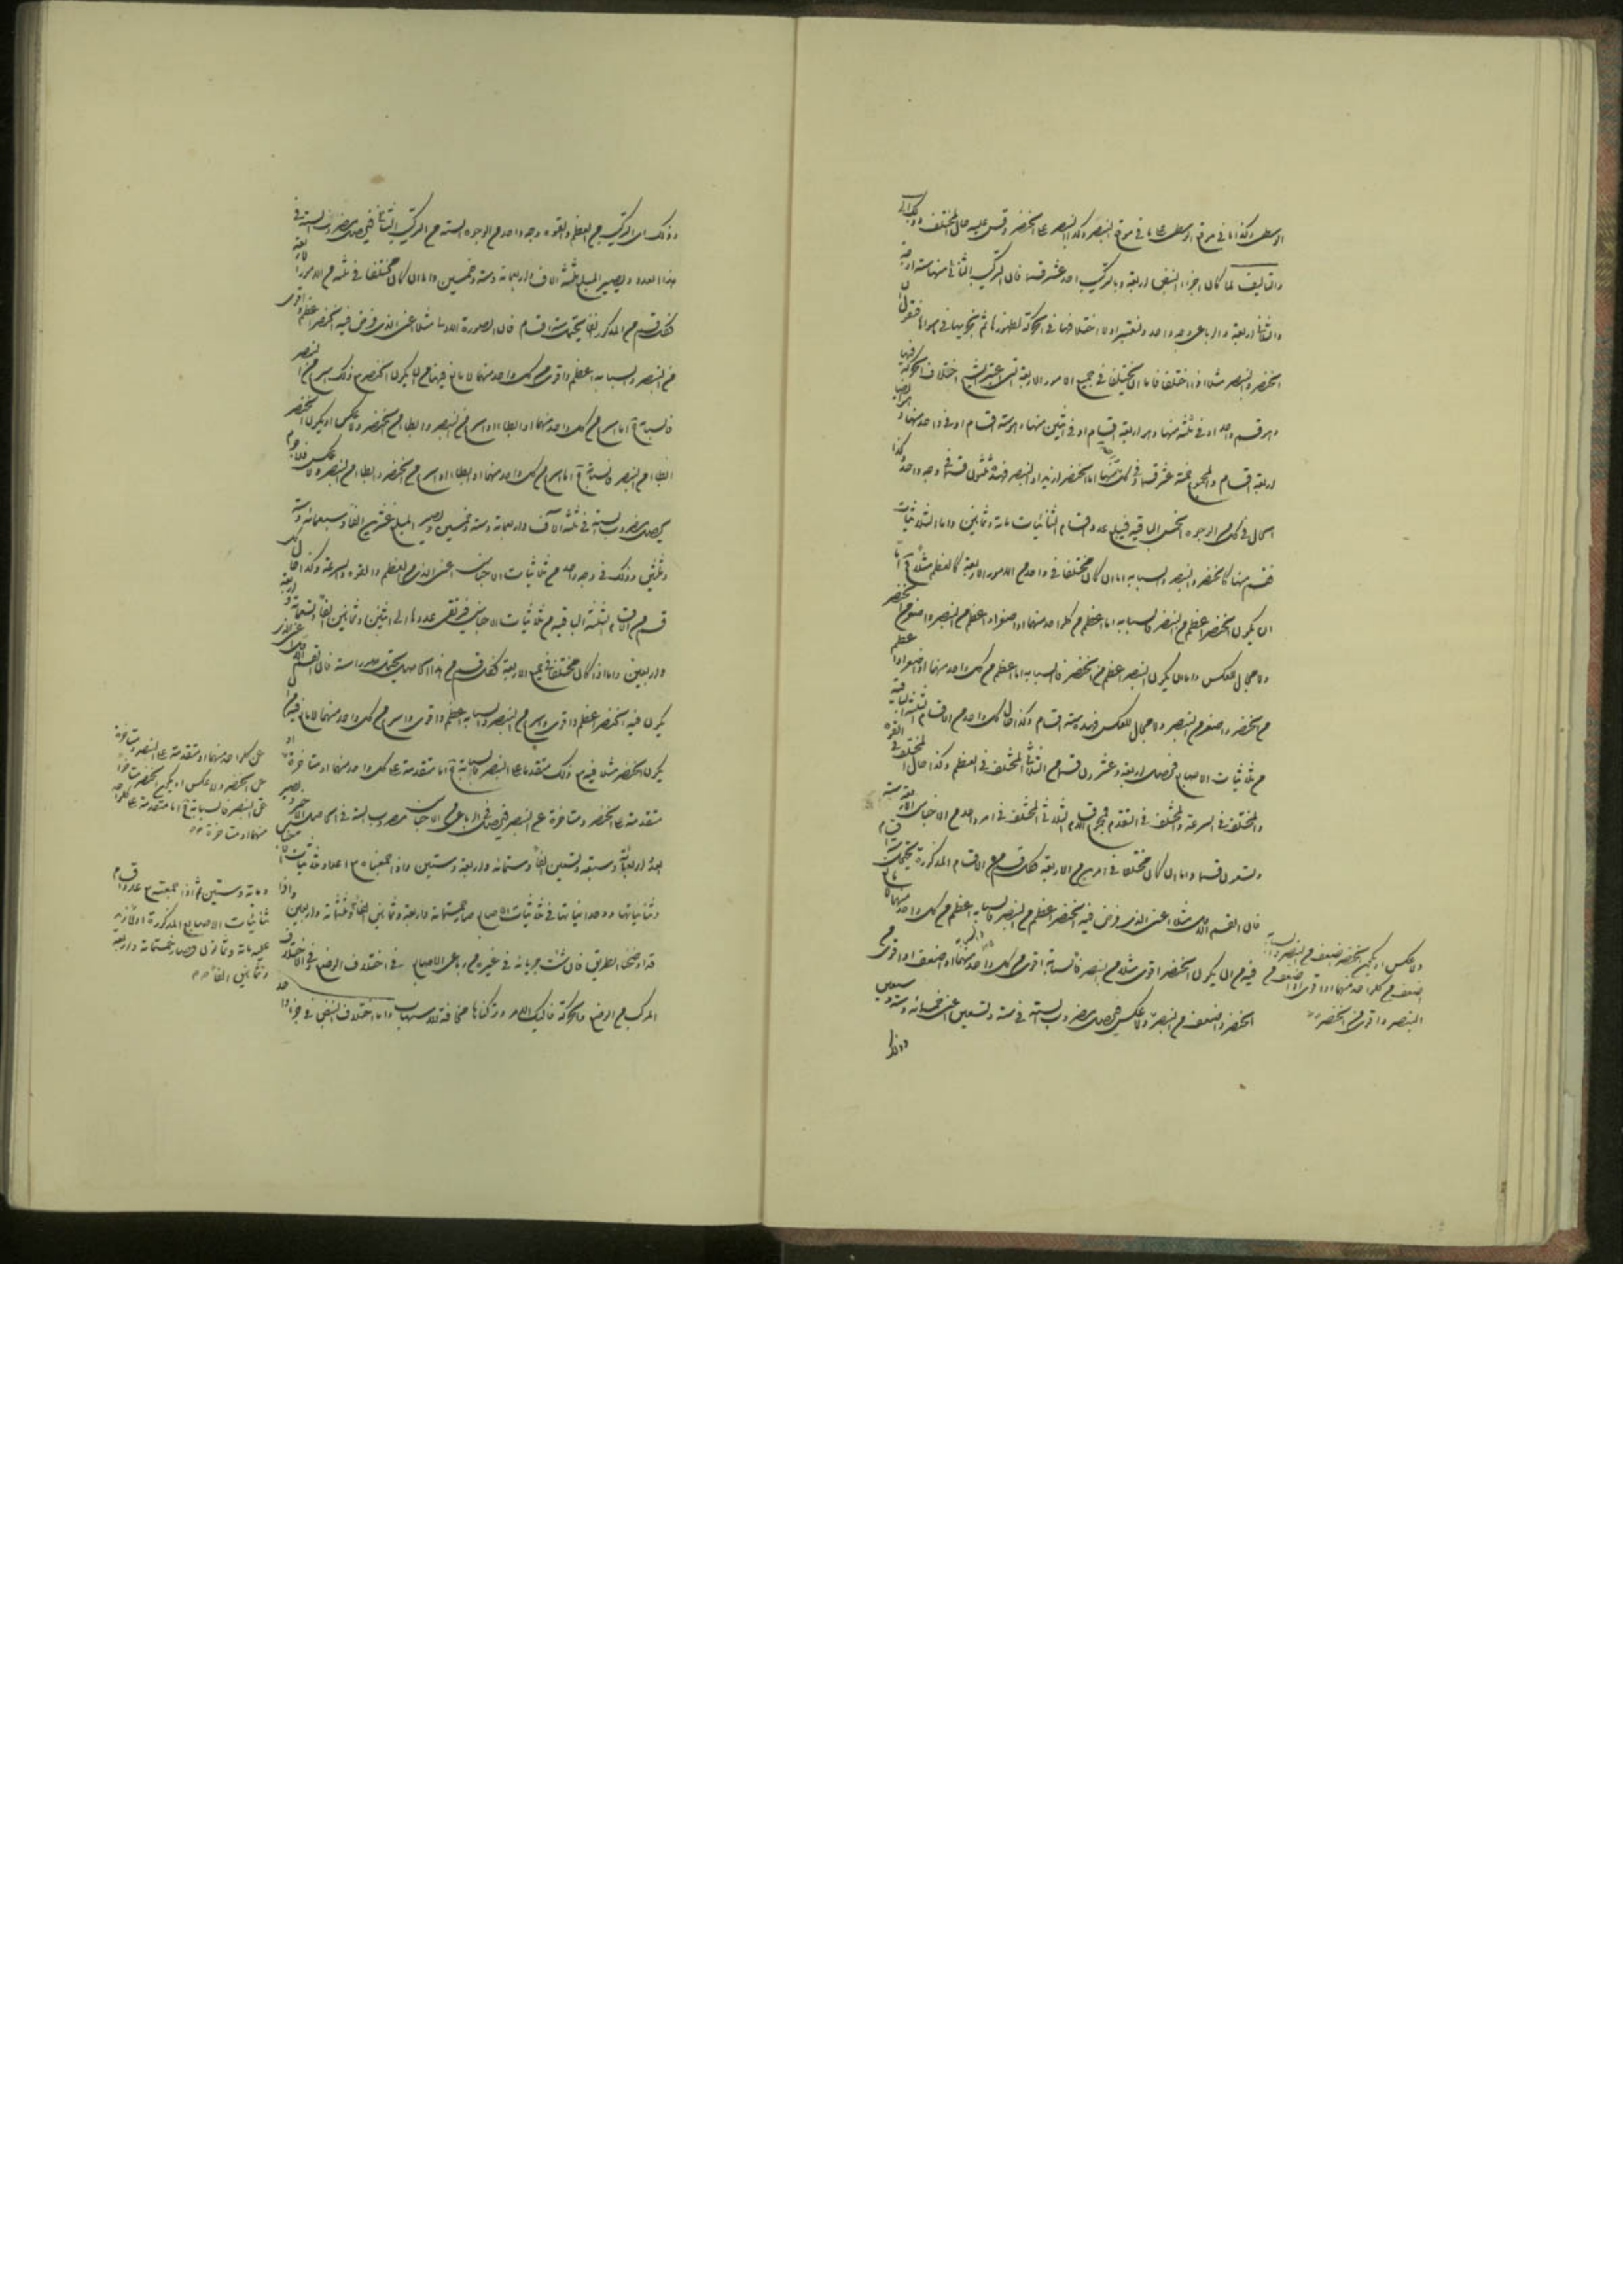 الوسطى وكذا ما في موقع الوسطى على ما في موقع البنصر وكذا البنصر على الخنصر وقس عليه حال المختلف وذلك
والتأليف لما كان اجزاء النبض اربعة وبالتركيب احد عشر قسما فان التركيب الثنائي منها ستة اوجه
والثلاثي اربعة والرباعي وجه واحد ولنعتبر اولا اختلافها في الحركة لظهورها ثم نجريها في سواها فنقول
الخنصر والبنصر مثلا اذا اختلفا فاما ان يختلفا في جميع الامور الاربعة التي اعتبر الشيخ اختلاف الحركة فيها
وهو قسم واحد او في ثلثة منها وهو اربعة اقسام او في اثنين منها وهو ستة اقسام او في واحد منها وهو ايضا
اربعة اقسام والمجموع خمسة عشر قسما وفي كل منها اما الخنصر ازيد او البنصر فهذه ثلثون قسما في وجه واحد وكذا
الحال في كل من الوجوه الخمس الباقية فيبلغ عدد اقسام الثنائيات مائة وثمانين واما الثلاثيات
فقسم منها كالخنصر والبنصر والسبابة اما ان كان مختلفا في واحد من الامور الاربعة كالعظم مثلا فاما
ان يكون الخنصر اعظم من البنصر فالسبابة اما اعظم من كل واحد منهما او اصغر او اعظم من البنصر واصغر من الخنصر
ولا مجال للعكس واما ان يكون البنصر اعظم من الخنصر فالسبابة اما اعظم من كل واحد منهما او اصغر او اعظم
من الخنصر واصغر من البنصر ولا مجال للعكس فهذه ستة اقسام وكذا حال كل واحد من الاقسام الثلثة الباقية
من ثلاثيات الاصابع فحصل اربعة وعشرون قسما من الثلاثي المختلف في العظم وكذا حال المختلف في القوة
والمختلف في السرعة والمختلف في التقدم فمجموع اقسام الثلاثي المختلف في امر واحد من الاجناس الاربعة ستة
وتسعون قسما واما ان كان مختلفا في امرين من الاربعة فكل قسم من الاقسام المذكورة يحتمل ستة اقسام
فان القسم الاول مثلا اعني الذي فرض فيه الخنصر اعظم من البنصر والسبابة اعظم من كل واحد منهما
فيه من ان يكون الخنصر اقوى مثلا من البنصر فالسبابة اقوى من كل واحد منهما او اضعف او اقوى من
الخنصر واضعف من البنصر ولا عكس فحصل مضروب الستة في ستة وتسعين اعني خمسمائة وستة وسبعين
ولا عكس او يكون الخنصر اضعف من البنصر والسبابة
اضعف من كل واحد منهما او اقوى او اضعف من
البنصر واقوى من الخنصر
وذلك
وذلك اي التركيب من العظم والقوة وجه واحد من الوجوه الستة من التركيب الثنائي فيحصل مضروب الستة في
هذا العدد ويصير المبلغ ثلثة الاف واربعمائة وستة وخمسين واما ان كان مختلفا في ثلثة من الامور الاربعة
فكل قسم من المذكور ايضا يحتمل ستة اقسام فان الصورة الاولى مثلا اعني الذي فرض فيه الخنصر اعظم واقوى
من البنصر والسبابة اعظم واقوى من كل واحد منهما لا مانع فيها من ان يكون الخنصر مع ذلك اسرع من البنصر
فالسبابة اما اسرع من كل واحد منهما او ابطأ او اسرع من البنصر وابطأ من الخنصر ولا عكس او يكون الخنصر
ابطأ من البنصر فالسبابة اما اسرع من كل واحد منهما او ابطأ او اسرع من الخنصر وابطأ من البنصر ولا عكس
يحصل مضروب الستة في ثلثة الاف واربعمائة وستة وخمسين ويصير المبلغ عشرين الفا وسبعمائة وستة
وثلثين وذلك في وجه واحد من ثلاثيات الاجناس اعني الذي من العظم والقوة والسرعة وكذا حال كل
قسم من الاقسام الثلثة الباقية من ثلاثيات الاجناس فيرتقى عددها الى اثنين وثمانين الفا وتسعمائة واربعة
واربعين واما اذا كان مختلفا في جميع الاربعة فكل قسم من هذا الحاصل يحتمل صورا ستة فان القسم الاول اعني الذي
يكون فيه الخنصر اعظم واقوى واسرع من البنصر والسبابة اعظم واقوى واسرع من كل واحد منهما لا مانع فيه من ان
يكون الخنصر مثلا فيه مع ذلك متقدما على البنصر فالسبابة اما متقدمة على كل واحد منهما او متأخرة او
متقدمة على الخنصر ومتأخرة عن البنصر فيحصل في الرباعي من الاجناس مضروب الستة في الحاصل الاخير ويصير
اربعمائة وسبعة وتسعين الفا وستمائة واربعة وستين واذا جمعنا اعداد ثلاثيات
وثنائياتها ووحدانياتها في ثلاثيات الاصابع صار خمسمائة واربعة وثمانين الفا وثلثمائة واربعين واذا
قد اوضحنا الطريق فان شئت جريانه في غيره من رباعي الاصابع وفي اختلاف الوضع وفي الاختلاف
المركب من الوضع والحركة فاليك الامر وتركناها مخافة للاسهاب واما اختلاف النبض في جزء واحد
عن كل واحد منهما او متقدمة على البنصر ومتأخرة
عن الخنصر ولا عكس او يكون الخنصر متأخرا
عن البنصر فالسبابة اما متقدمة على كل واحد
منهما او متأخرة
ومائة وستين ثم اذا جمعته مع عدد اقسام
ثنائيات الاصابع المذكورة اولا زيد
عليه مائة وثمانون فصار خمسمائة واربعة
وثمانين الفا